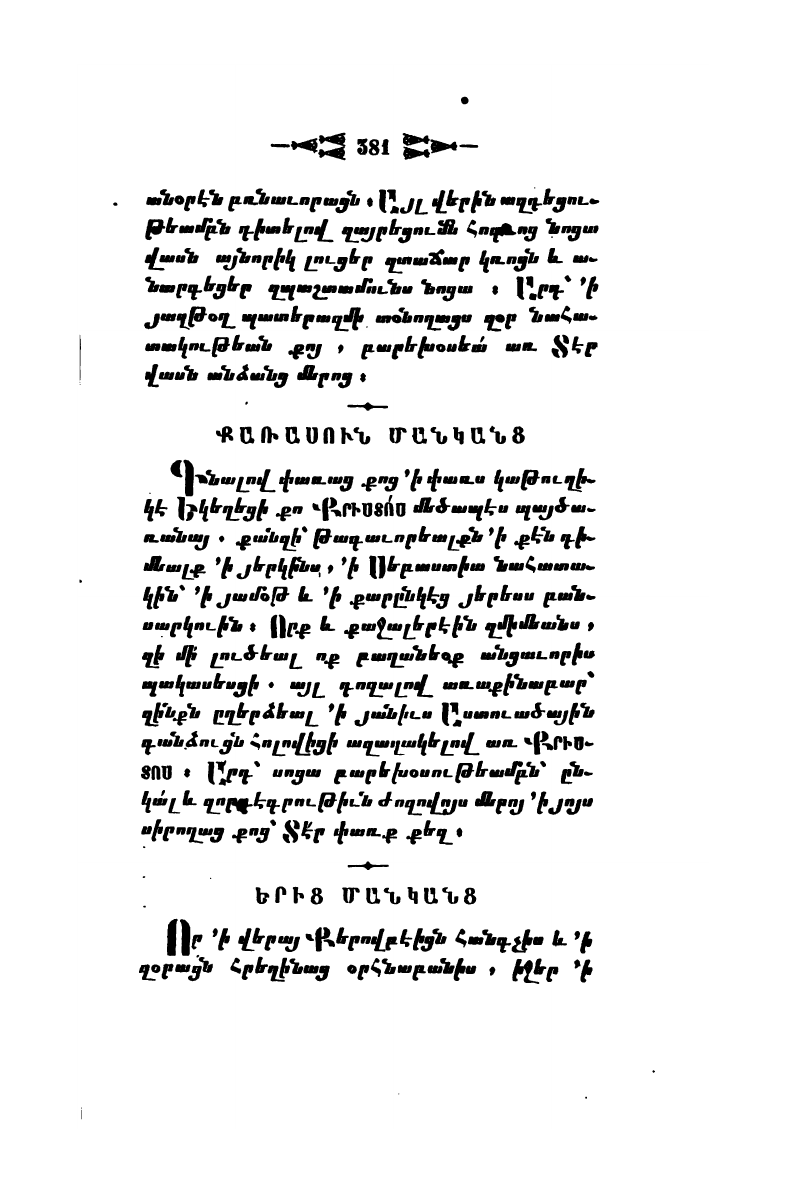 381
անօրէն բռնաւորացն ։ Այլ վերին ազդեցու֊
թեամբն դիտելով զայրեցումն հոգւոց նոցա
վասն այնորիկ լուցեր զտաճար կռոցն և ա֊
նարգեցեր զպաշտամունս նոցա ։ Արդ՝ ՚ի
յաղթօղ պատերազմի տօնողացս զօր նահա֊
տակութեան քոյ , բարեխօսեա՛ առ Տէր
վասն անձանց մերոց ։
ՔԱՌԱՍՈՒՆ ՄԱՆԿԱՆՑ
Գիւնալով փառաց քոց ՚ի փառս կաթուղի֊
կէ Եկեղեցի քո ՔՐԻՍՏՈ՛Ս մեծապէս պայծա֊
ռանայ . քանզի՝ թագաւորեալքն ՚ի քէն դի֊
մեալք ՚ի յերկինս , ՚ի Սեբաստիա նահատա֊
կին՝ ՚ի յամօթ և ՚ի քարընկէց յերեսս բան֊
սարկուին ։ Որք և քաջալերէին զմիմեանս ,
զի մի՛ լուծեալ ոք բաղանեօք անցաւորիս
պակասեսցի . այլ դողալով առաքինաբար՝
զինքն ըղերձեալ ՚ի յանիւս Աստուածային
գանձուցն հոլովիցի աղաղակելով առ ՔՐԻՍ֊
ՏՈՍ ։ Արդ՝ սոցա բարեխօսութեամբն՝ ըն֊
կա՛լ և զորդեգրութիւն ժողովոյս մերոյ ՚ի յոյս
սիրողաց քոց՝ Տէ՛ր փառք քեզ ։
ԵՐԻՑ ՄԱՆԿԱՆՑ
Որ ՚ի վերայ Քերովբէիցն հանգչիս և ՚ի
զօրացն Հրեղինաց օրհնաբանիս , իջեր ՚ի